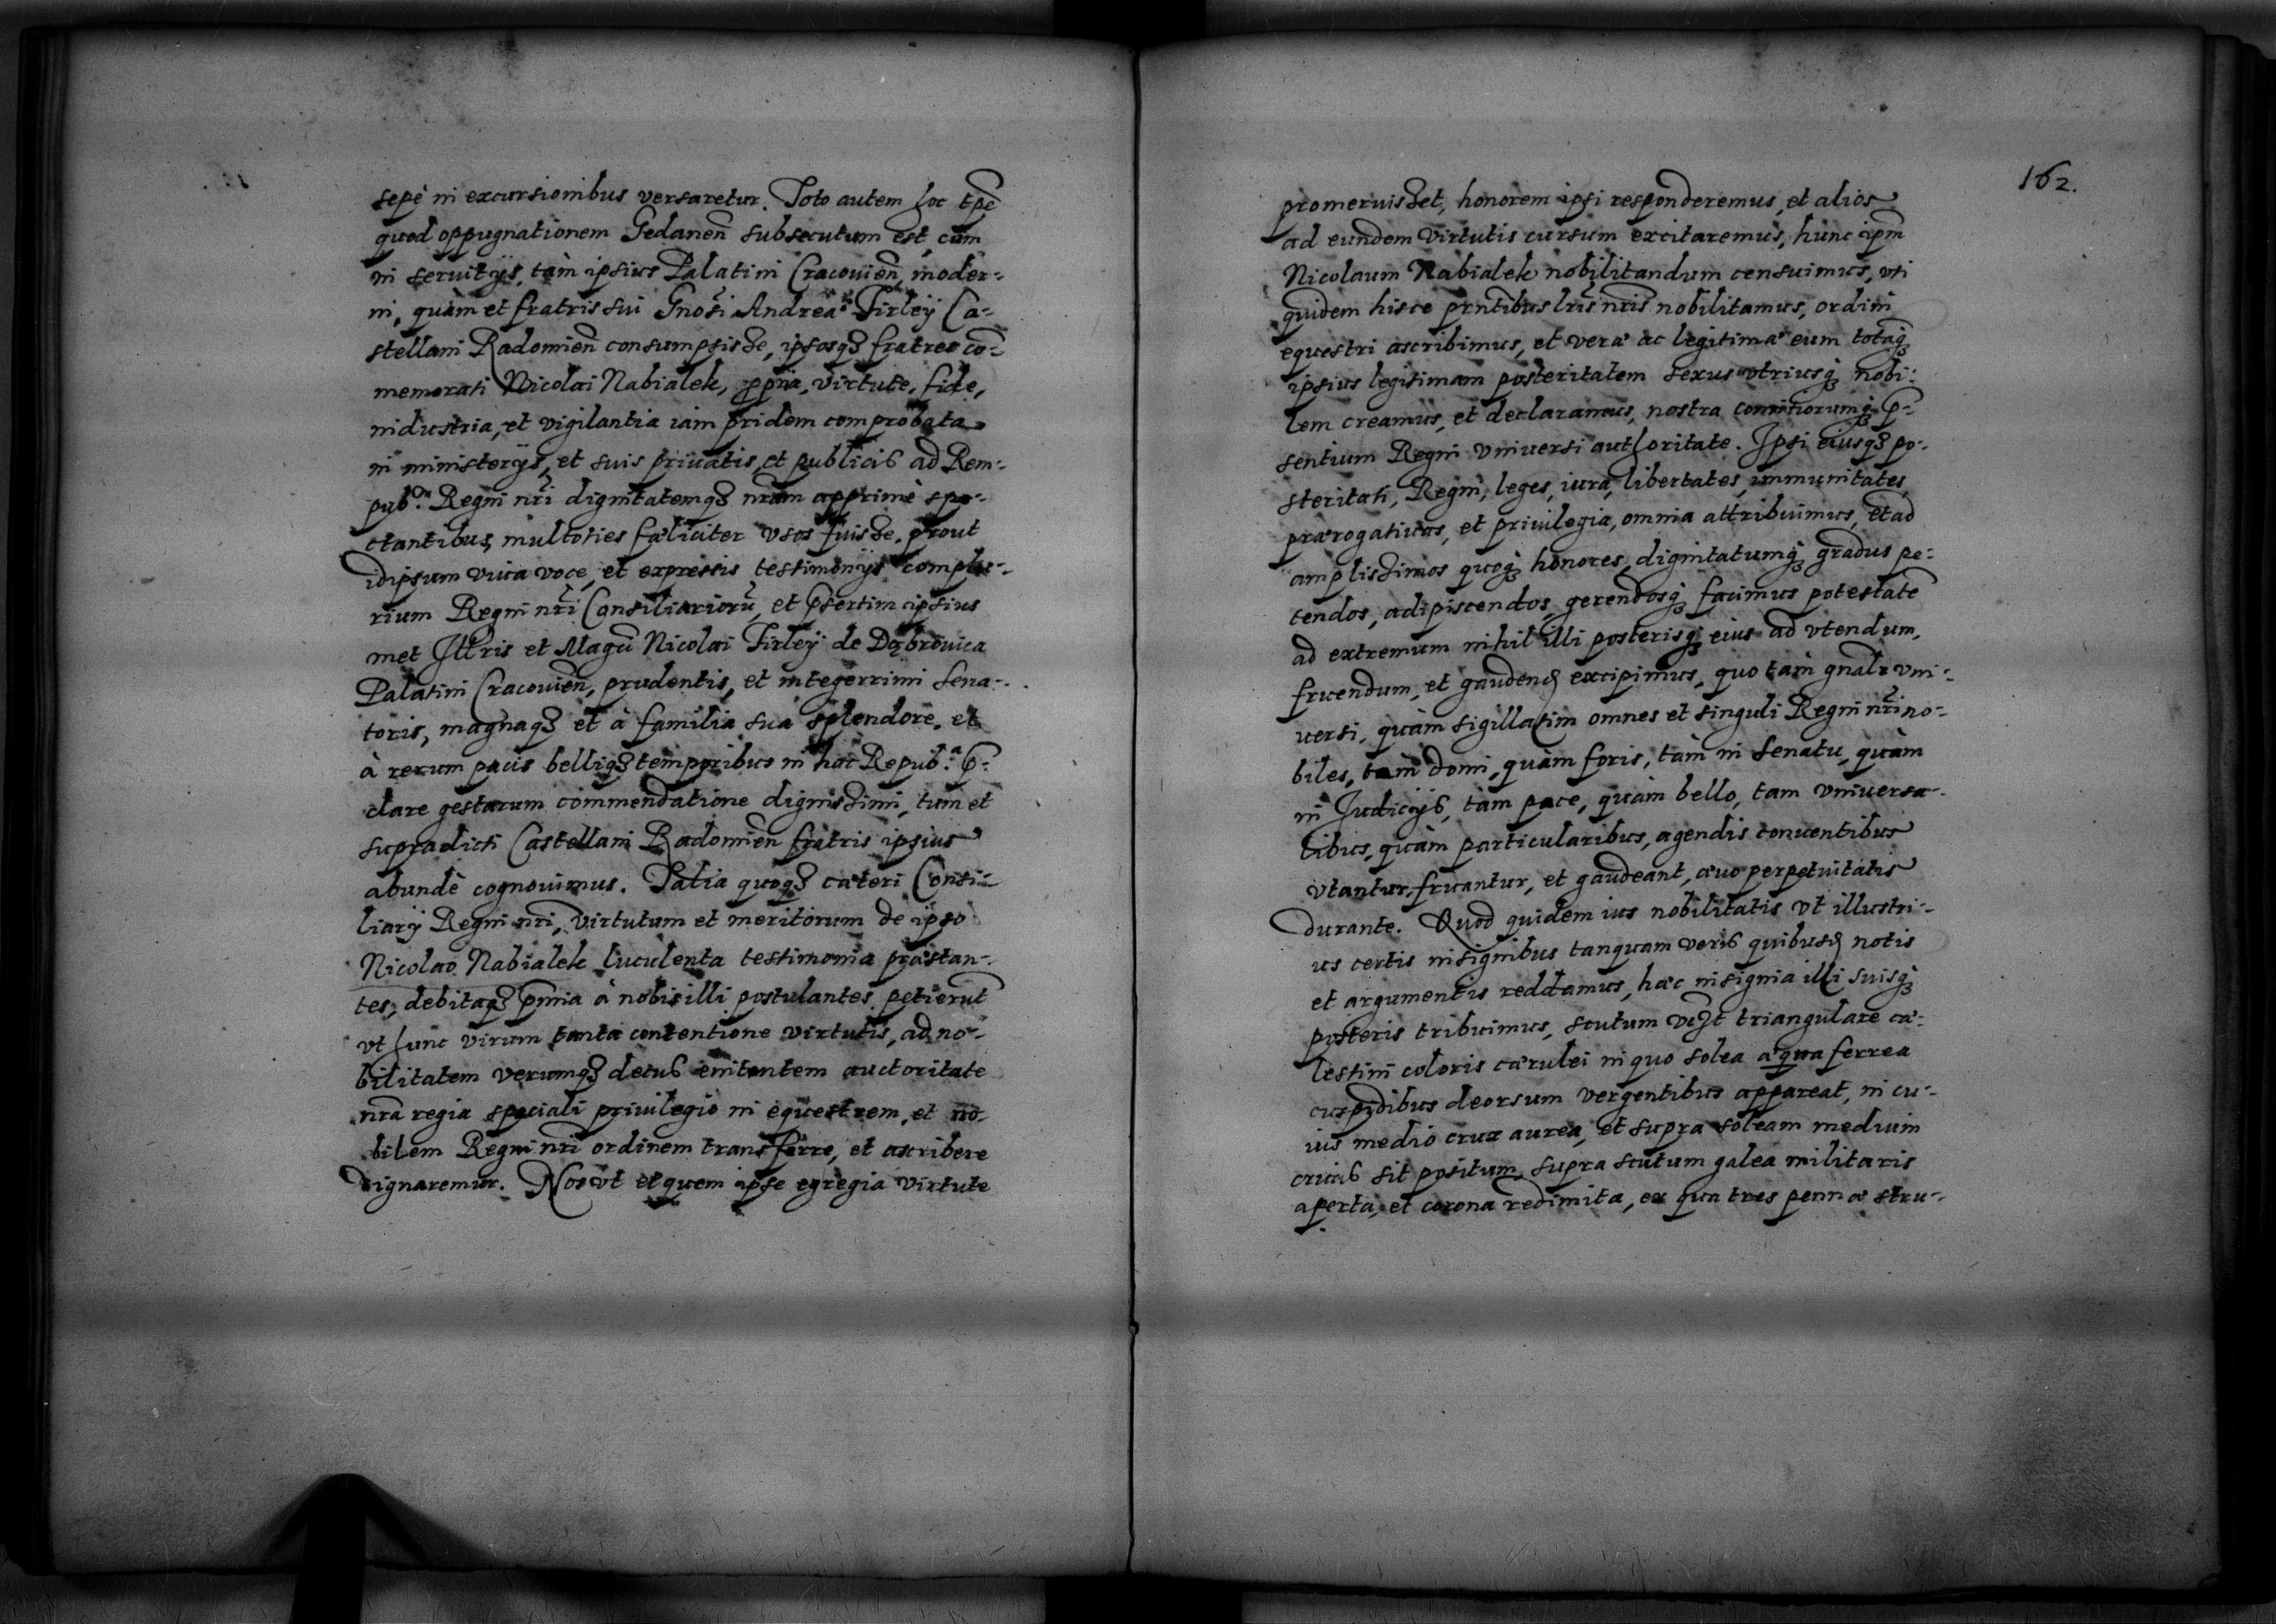 sepè in excursionibus versaretur. Toto autem hoc tp̃e
quod oppugnationem Gedaneñ subsecutum est, cùm
in servitijs, tàm ipsius Palatini Cracovieñ, moder-
ni, quàm et fratris sui Gnosi Andreæ Firleÿ Ca-
stellani Radomieñ consumpsisse, ipsosqȝ fratres cõ-
memorati Nicolai Nabialek, ppria, virtute, fide,
industria, et vigilantia iam pridem comprobata
in ministerijs, et suis privatis, et publicis ad Rem-
pub.cæ Regni nr̃i dignitatemqȝ nr̃am apprimè spe-
ctantibus, multoties fæliciter vsos fuisse, prout
idipsum viva voce, et expressis testimonijs complu-
rium Regni nr̃i Consiliariorũ, et p̃sertim ipsius
met Illr̃is et Magñi Nicolai Firleÿ de Dąbrovica
Palatini Cracovieñ, prudentis, et integerrimi Sena-
toris, magnaqȝ et à familia sua splendore, et
à rerum pacis belliqȝ temporibus in hac Repub.a p̃-
clare gestarum commendatione dignissimi, tum et
supradicti Castellani Radomieñ fratris ipsius
abundè cognovimus. quoqȝ cæteri Consi-
liarÿ Regni nr̃i, virtutum et meritorum de ipso
Nicolao Nabialek luculenta testimonia præstan-
tes, debitaqȝ p̃mia à nobis illi postulantes petierũt
vt hunc virum tanta contentione virtutis, ad no-
bilitatem verumqȝ decus enitentem auctoritate
nr̃a regia speciali privilegio in equestrem, et no-
bilem Regni nr̃i ordinem transferre, et ascribere
dignaremur. Nos vt et quem ipse egregia virtute
162.
promeruisset, honorem ipsi responderemus, et alios
ad eundem virtutis cursum excitaremus, hunc ip̃m
Nicolaum Nabialek nobilitandum censuimus, vti
quidem hisce pr̃ntibus lr̃is nr̃is nobilitamus, ordini
equestri ascribimus, et veræ ac legitimæ eum totàqȝ
ipsius legitimam posteritatem sexus vtriusqȝ nobi-
lem creamus, et declaramus, nostra comitiorumqȝ p̃-
sentium Regni vniversi authoritate. Ipsi eiusqȝ po-
steritati, Regni, leges, iura, libertates, immunitates,
prærogativas, et privilegia, omnia attribuimus, et ad
amplissimos quoqȝ honores, dignitatumqȝ gradus pe-
tendos, adipiscendos, gerendosqȝ facimus potestatẽ
ad extremum nihil illi posterisqȝ eius ad vtendum,
fruendum, et gaudend excipimus, quo tàm gnalr vni-
versi, quàm sigillatim omnes et singuli Regni nr̃i no-
biles, tàm domi, quàm foris, tàm in Senatu, quàm
in Judicijs, tàm pace, quàm bello, tam vniversa-
libus, quàm particularibus, agendis conventibus
vtantur, fruantur, et gaudeant, ævo perpetuitatis
durante. Quod quidem ius nobilitatis vt illustri-
us certis insignibus tanquam veris quibusd notis
et argumentis reddamus, hæc insignia illi suisqȝ
posteris tribuimus, scutum vcȝt triangulare cæ-
lestini coloris cærulei in quo solea æqua ferrea
cuspidibus deorsum vergentibus appareat, in cu-
ius medio crux aurea, et supra soleam medium
crucis sit positum, supra scutum galea militaris
aperta, et corona redimita, ex qua tres pennæ stru-